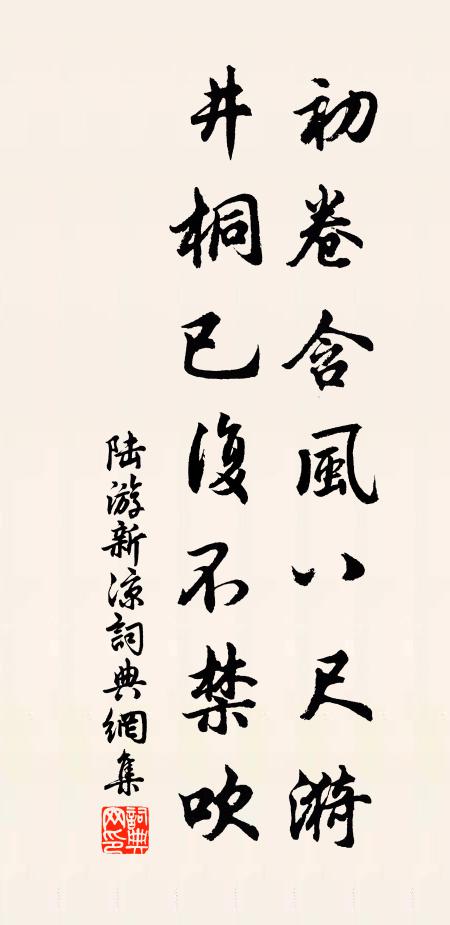 初卷含風八尺漪
井桐已復不禁吹
陸游新涼詞典網集
詞典网印